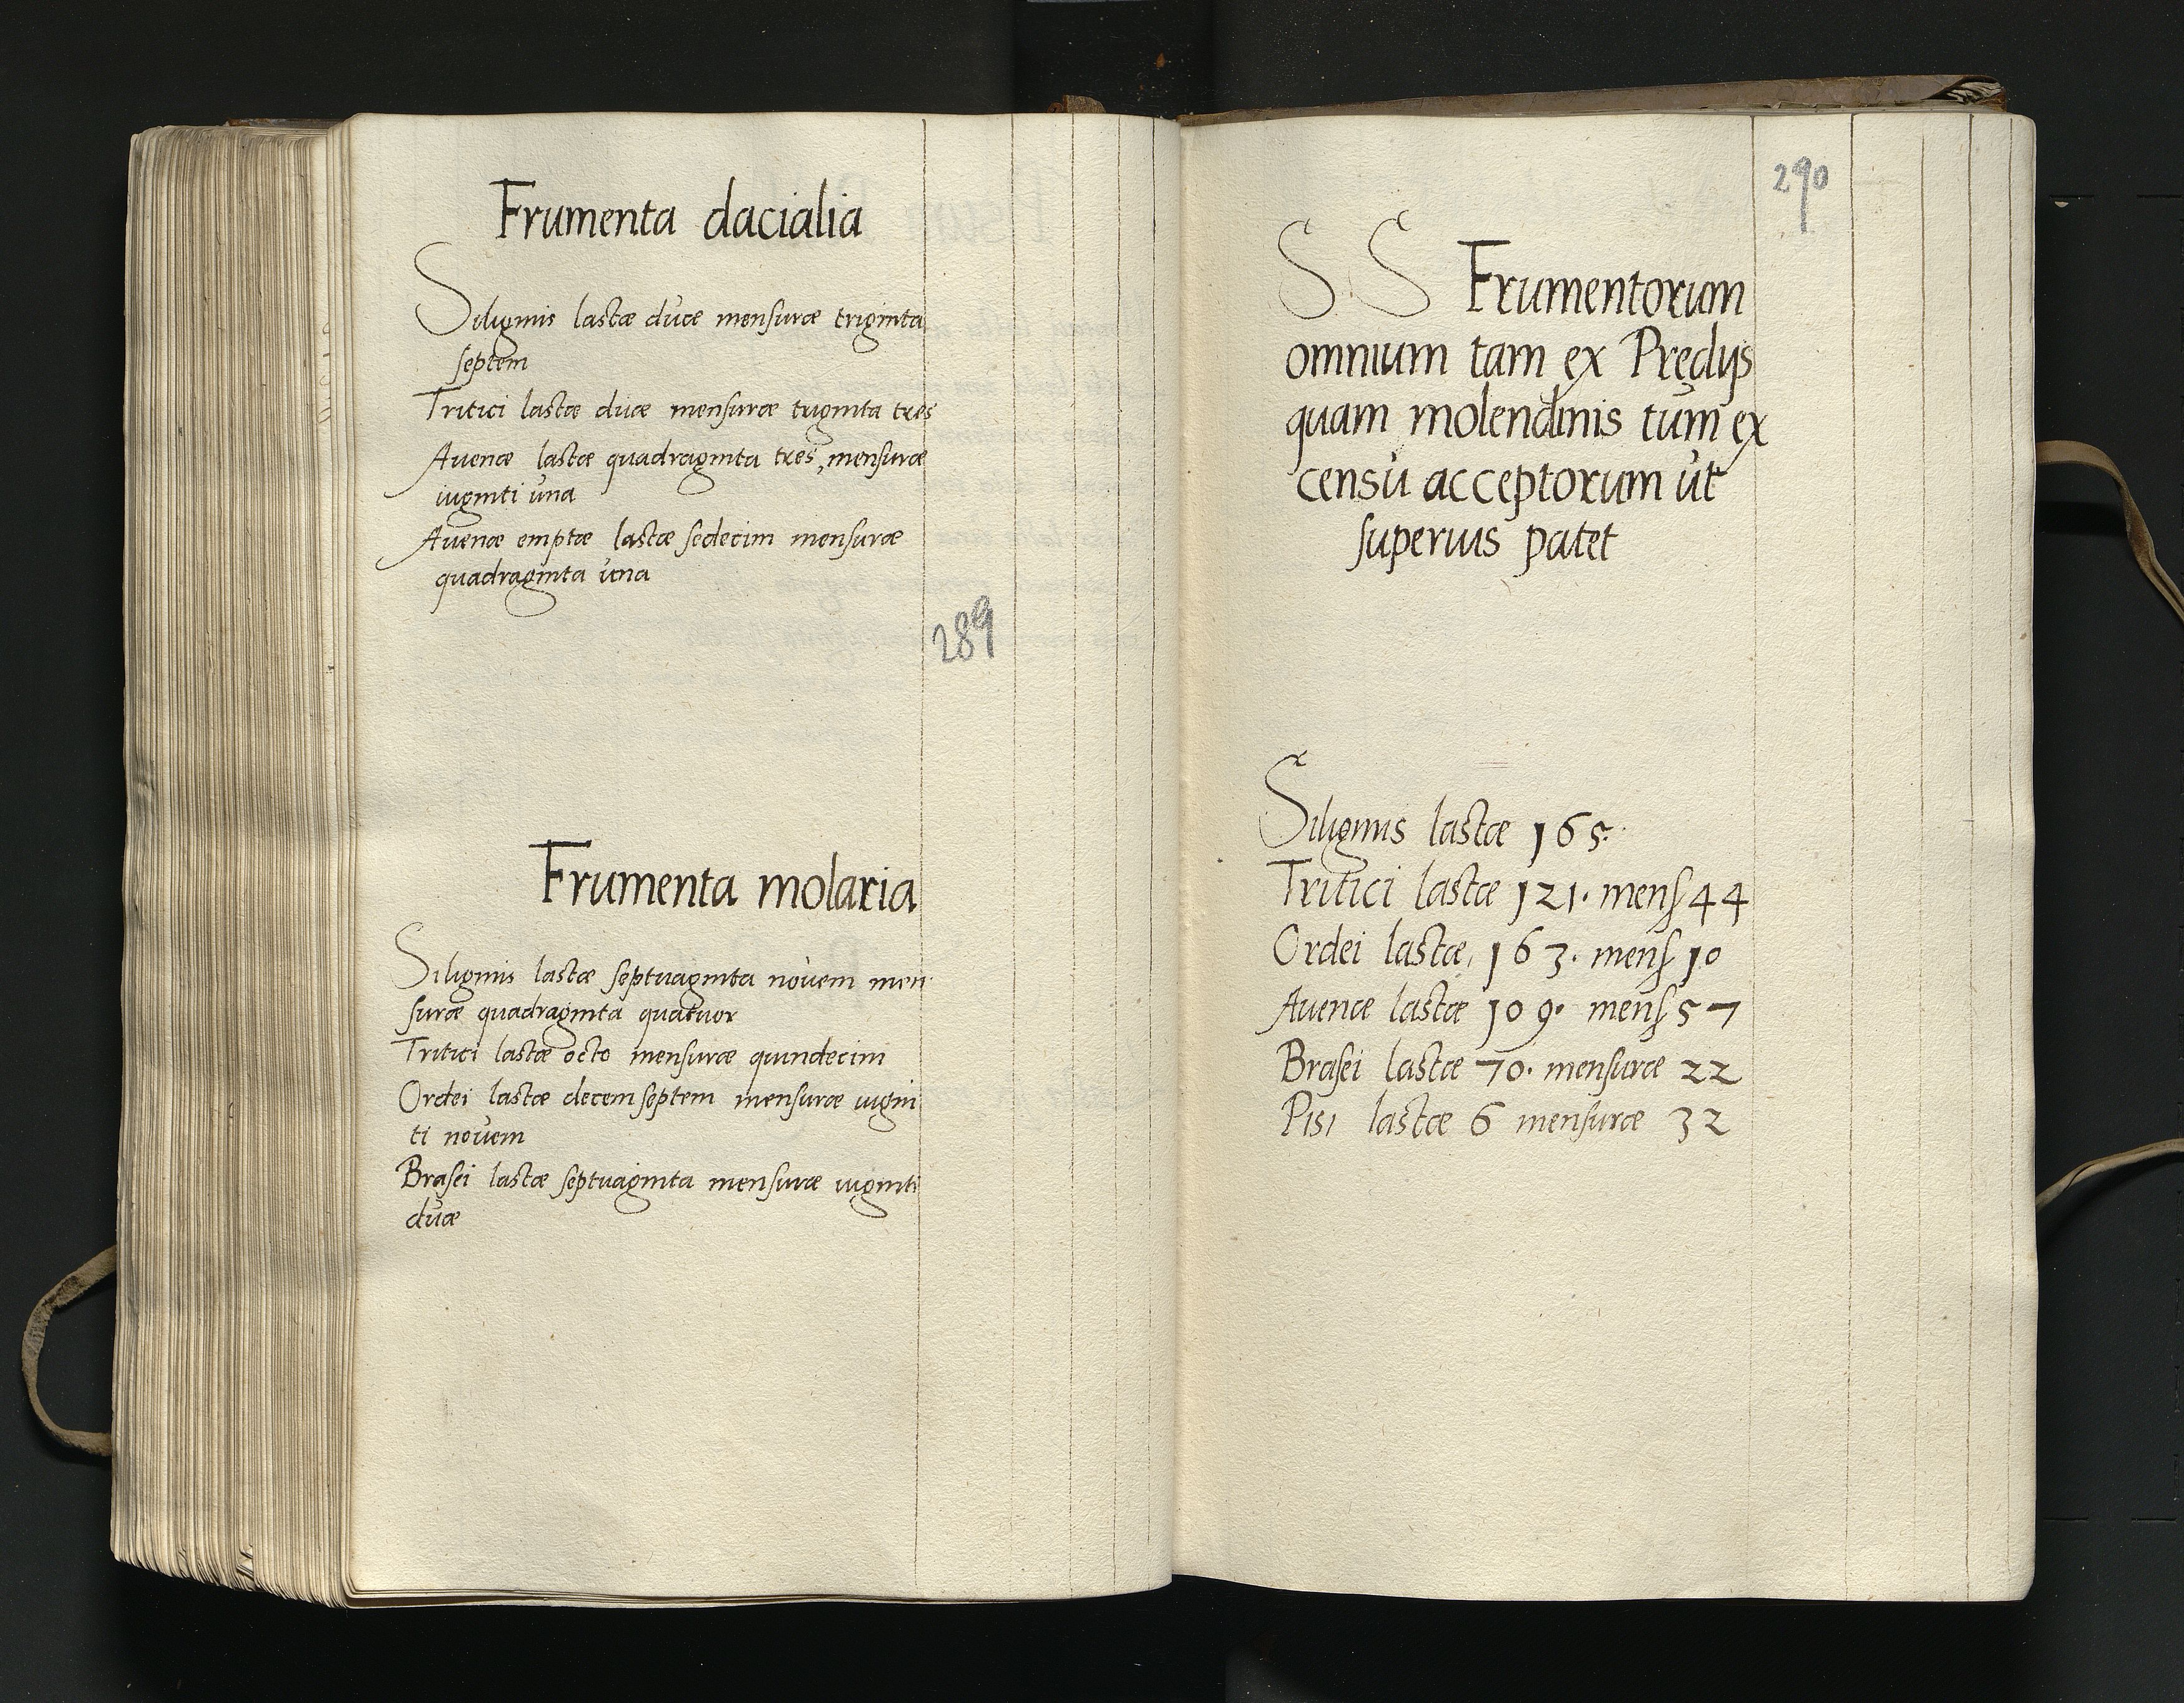 Frumenta dacialia
Siliginis lastæ duæ mensuræ triginta
septem
Tritici lastæ duæ mensuræ triginta tres
Auenæ lastæ quadraginta tres, mensuræ
uiginti una
Auenæ emptæ lastæ sedecim mensuræ
quadraginta una
289
Frumenta molaria
Siliginis lastæ septuaginta nouem men
suræ quadraginta quatuor
Tritici lastæ octo mensuræ quindecim
Ordei lastæ decem septem mensuræ uigin
ti nouem
Brasei lastæ septuaginta mensuræ uiginti
duæ
290
S S Frumentorum
omnium tam ex Predijs
quam molendinis tum ex
censu acceptorum ut
superius patet
Siliginis lastæ 165.
Tritici lastæ 121. mens 44
Ordei lastæ, 163. mens 10
Auenæ lastæ 109. mens 57
Brasei lastæ 70. mensuræ 22
Pisi lastæ 6 mensuræ 32